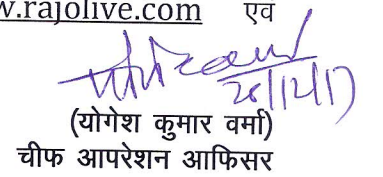 w.rajolive.com एवं
28/12/17
(योगेश कुमार वर्मा)
चीफ आपरेशन आफिसर